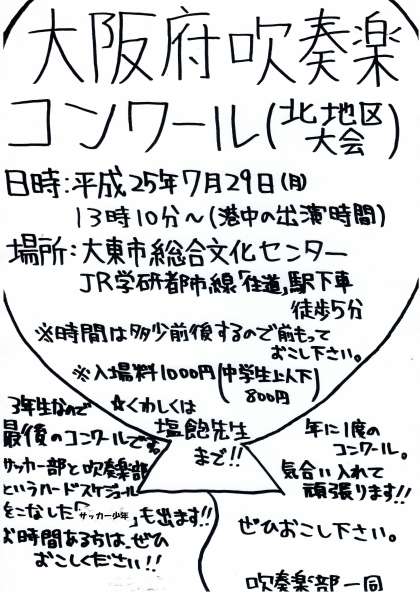 大阪府吹奏楽
コンクール(北地区
大会)
日時:平成25年7月29日(月)
13時10分~(港中の出演時間)
場所:大東市総合文化センター
JR学研都市線「住道」駅下車
徒歩5分
※時間は多少前後するので前もって
おこし下さい。
※入場料1000円(中学生以下
800円)
☆くわしくは
塩飽先生
まで!!
3年生なので
最後のコンクールです。
サッカー部と吹奏楽部
というハードスケジュール
をこなした「サッカー少年」も出ます!!
お時間ある方は、ぜひ
おこしください!!
年に1度の
コンクール。
気合い入れて
頑張ります!!
ぜひおこし下さい。
吹奏楽部一同